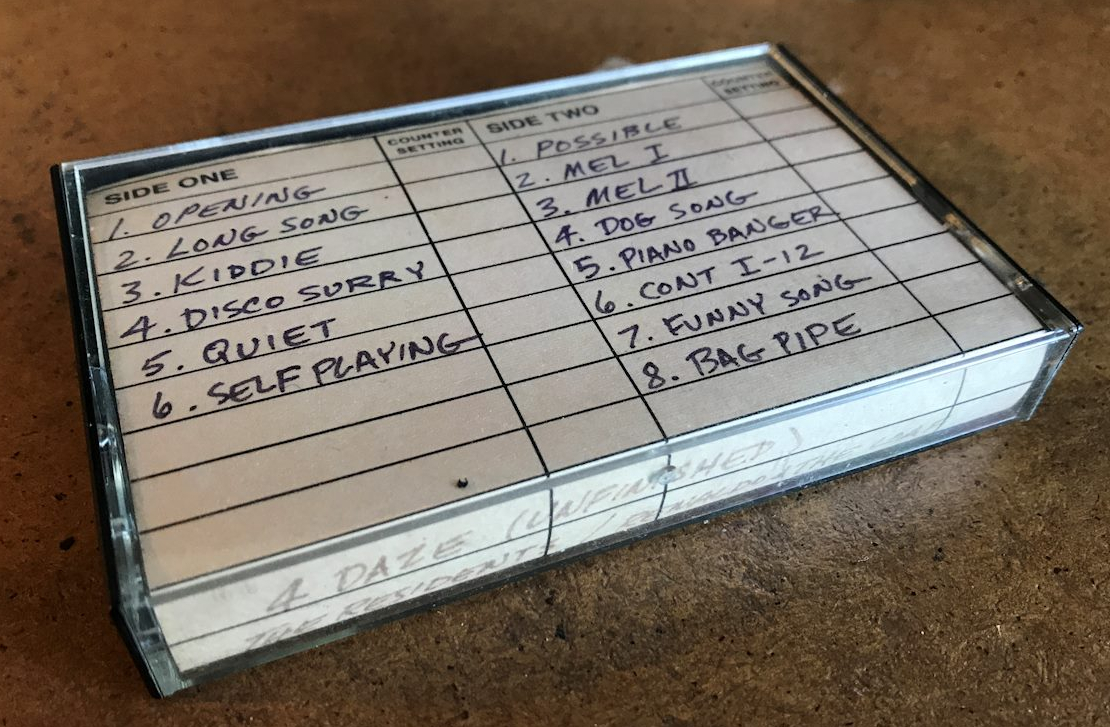 SIDE ONE
COUNTER
SETTING
1. OPENING
2. LONG SONG
3. KIDDIE
4. DISCO SURRY
5. QUIET
6. SELF PLAYING
SIDE TWO
COUNTER
SETTING
1. POSSIBLE
2. MEL I
3. MEL II
4. DOG SONG
5. PIANO BANGER
6. CONT I-12
7. FUNNY SONG
8. BAG PIPE
4 DAZE (UNFINISHED)
THE RESIDENTS / RENALDO & THE LOAF